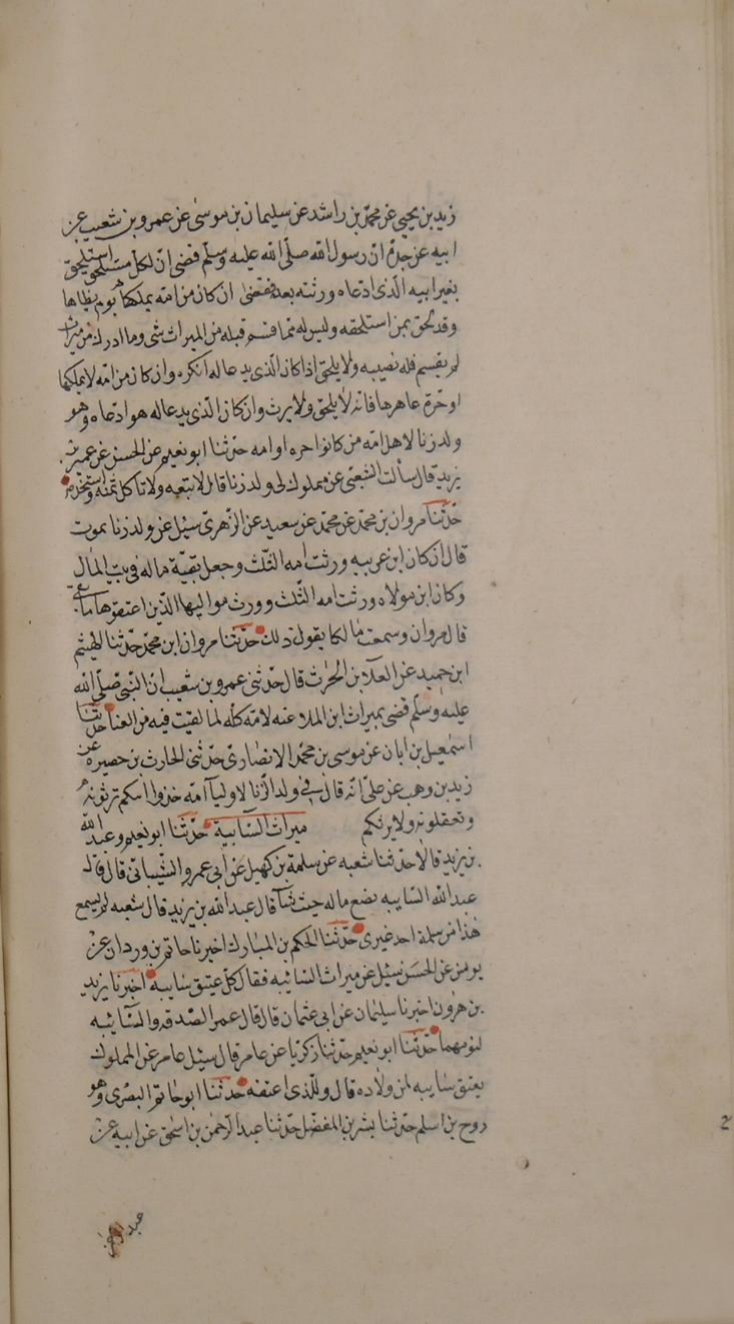 زيد بن يحيى عن محمد بن راشد عن سليمان بن موسى عن عمرو بن شعيب عن
ابيه عن جده ان رسول الله صلى الله عليه وسلم قضى ان لكل مستلحق استلحق
بغير ابيه الذى ادعاه ورثته بعده فقضى ان كان من امة يملكها يوم يطاها
وقد لحق بمن استلحقه وليس له مما قسم قبله من الميراث شى وما ادرك من ميراث
لم يقسم فله نصيبه ولا يلحق اذا كان الذى يدعا له انكره وان كان من امة لا يملكها
او حرة عاهرها فانه لا يلحق ولا يرث وان كان الذى يدعا له هو ادعاه وهو
ولد زنا لاهل امه من كانوا حره او امه حدثنا ابو نعيم عن الحسن عن عمير بن
يزيد قال سألت الشعبى عن مملوك لى ولد زنا قال لا تبعه ولا تاكل ثمنه واستخدمه
حدثنا مروان بن محمد عن محمد عن سعيد عن الزهرى سئل عن ولد زنا يموت
قال ان كان ابن عربيه ورثت امه الثلث وجعل بقية ماله فى بيت المال
وكان ابن مولاه ورثت امه الثلث وورث مواليها الذين اعتقوها ما بقى
قال مروان وسمعت مالكا يقول ذلك حدثنا مروان ابن محمد حدثنا الهيثم
ابن حميد عن العلا بن الحرث قال حدثنى عمرو بن شعيب ان النبى صلى الله
عليه وسلم قضى بميراث ابن الملاعنه لامه كله لما لقيت فيه من العنا حدثنا
اسمعيل بن ابان عن موسى بن محمد الانصارى حدثنى الحارث بن حصيره عن
زيد بن وهب عن على انه قال فى ولد الزنا لاوليا امه خذوا ابنكم ترثونه
وتعقلونه ولا يرثكم ميراث السايبة حدثنا ابو نعيم وعبد الله
بن يزيد قالا حدثنا شعبه عن سلمة بن كهيل عن ابى عمرو الشيبانى قال قال
عبد الله السايبه يضع ماله حيث شا قال عبد الله بن يزيد قال شعبه لم يسمع
هذا من سلمة احد غيرى حدثنا الحكم بن المبارك اخبرنا حاتم بن وردان عن
يونس عن الحسن سئل عن ميراث السائبه فقال كل عتيق سايبة اخبرنا يزيد
بن هرون اخبرنا سليمان عن ابى عثمان قال قال عمر الصدقه والسآئبه
ليومهما حدثنا ابو نعيم حدثنا زكريا عن عامر قال سئل عامر عن المملوك
يعتق سايبه لمن ولاده قال وللذى اعتقه حدثنا ابو حاتم البصرى وهو
روح بن اسلم حدثنا بشر بن المفضل حدثنا عبد الرحمن بن اسحق عن ابيه عن